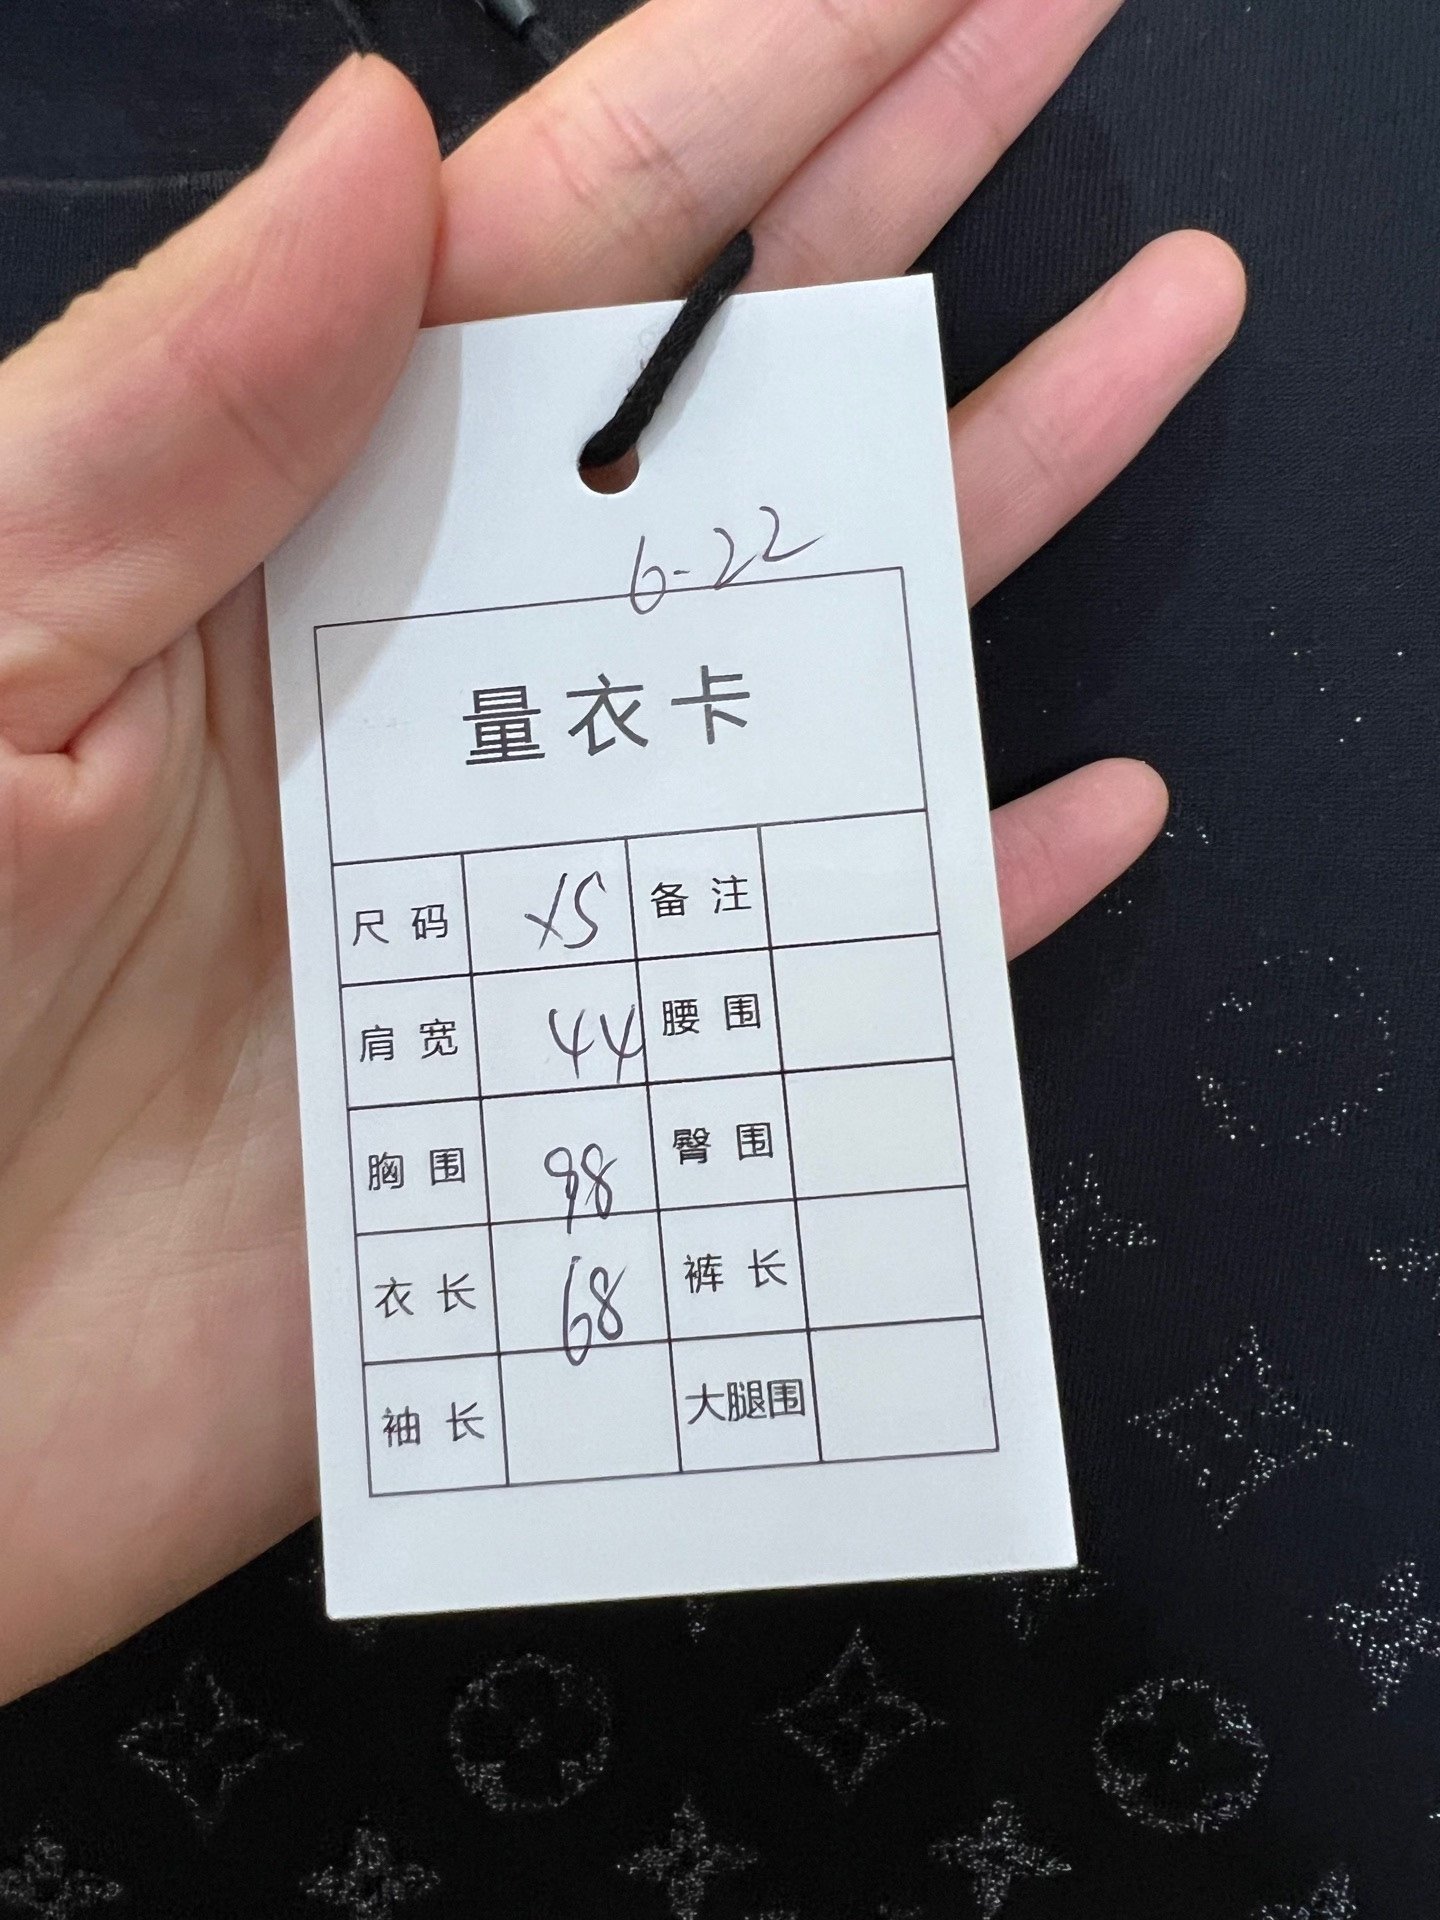 6-22
量衣卡
尺码 XS 备注
肩宽 44 腰围
胸围 98 臀围
衣长 68 裤长
袖长 大腿围